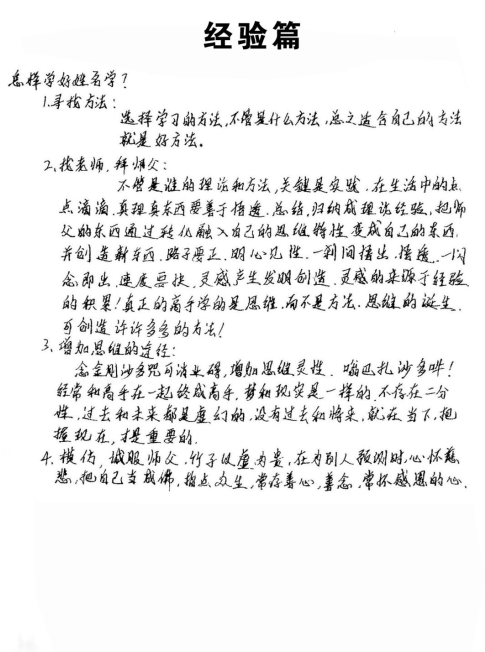 经验篇
怎样学好姓名学?
1.寻找方法:
选择学习的方法,不管是什么方法,总之适合自己的方法
就是好方法。
2、找老师,拜师父:
不管是谁的理论和方法,关键是实践,在生活中的点
点滴滴,真理真东西要善于悟透、总结,归纳成理论经验,把师
父的东西通过转化融入自己的思维特性变成自己的东西,
并创造新东西,路子要正,明心见性,一刹间悟出、悟透,一闪
念即出,速度要快,灵感产生发明创造,灵感的来源于经验
的积累!真正的高手学的是思维,而不是方法,思维的诞生,
可创造许许多多的方法!
3、增加思维的途径:
念金刚沙多咒可消业碍,增加思维灵性。嗡巴扎沙多吽!
经常和高手在一起终成高手,梦和现实是一样的,不存在二分
性,过去和未来都是虚幻的,没有过去和将来,就在当下,把
握现在,才是重要的。
4、模仿,诚服师父,竹子以虚为贵,在为别人预测时,心怀慈
悲,把自己当成佛,指点众生,常存善心,善念,常怀感恩的心。